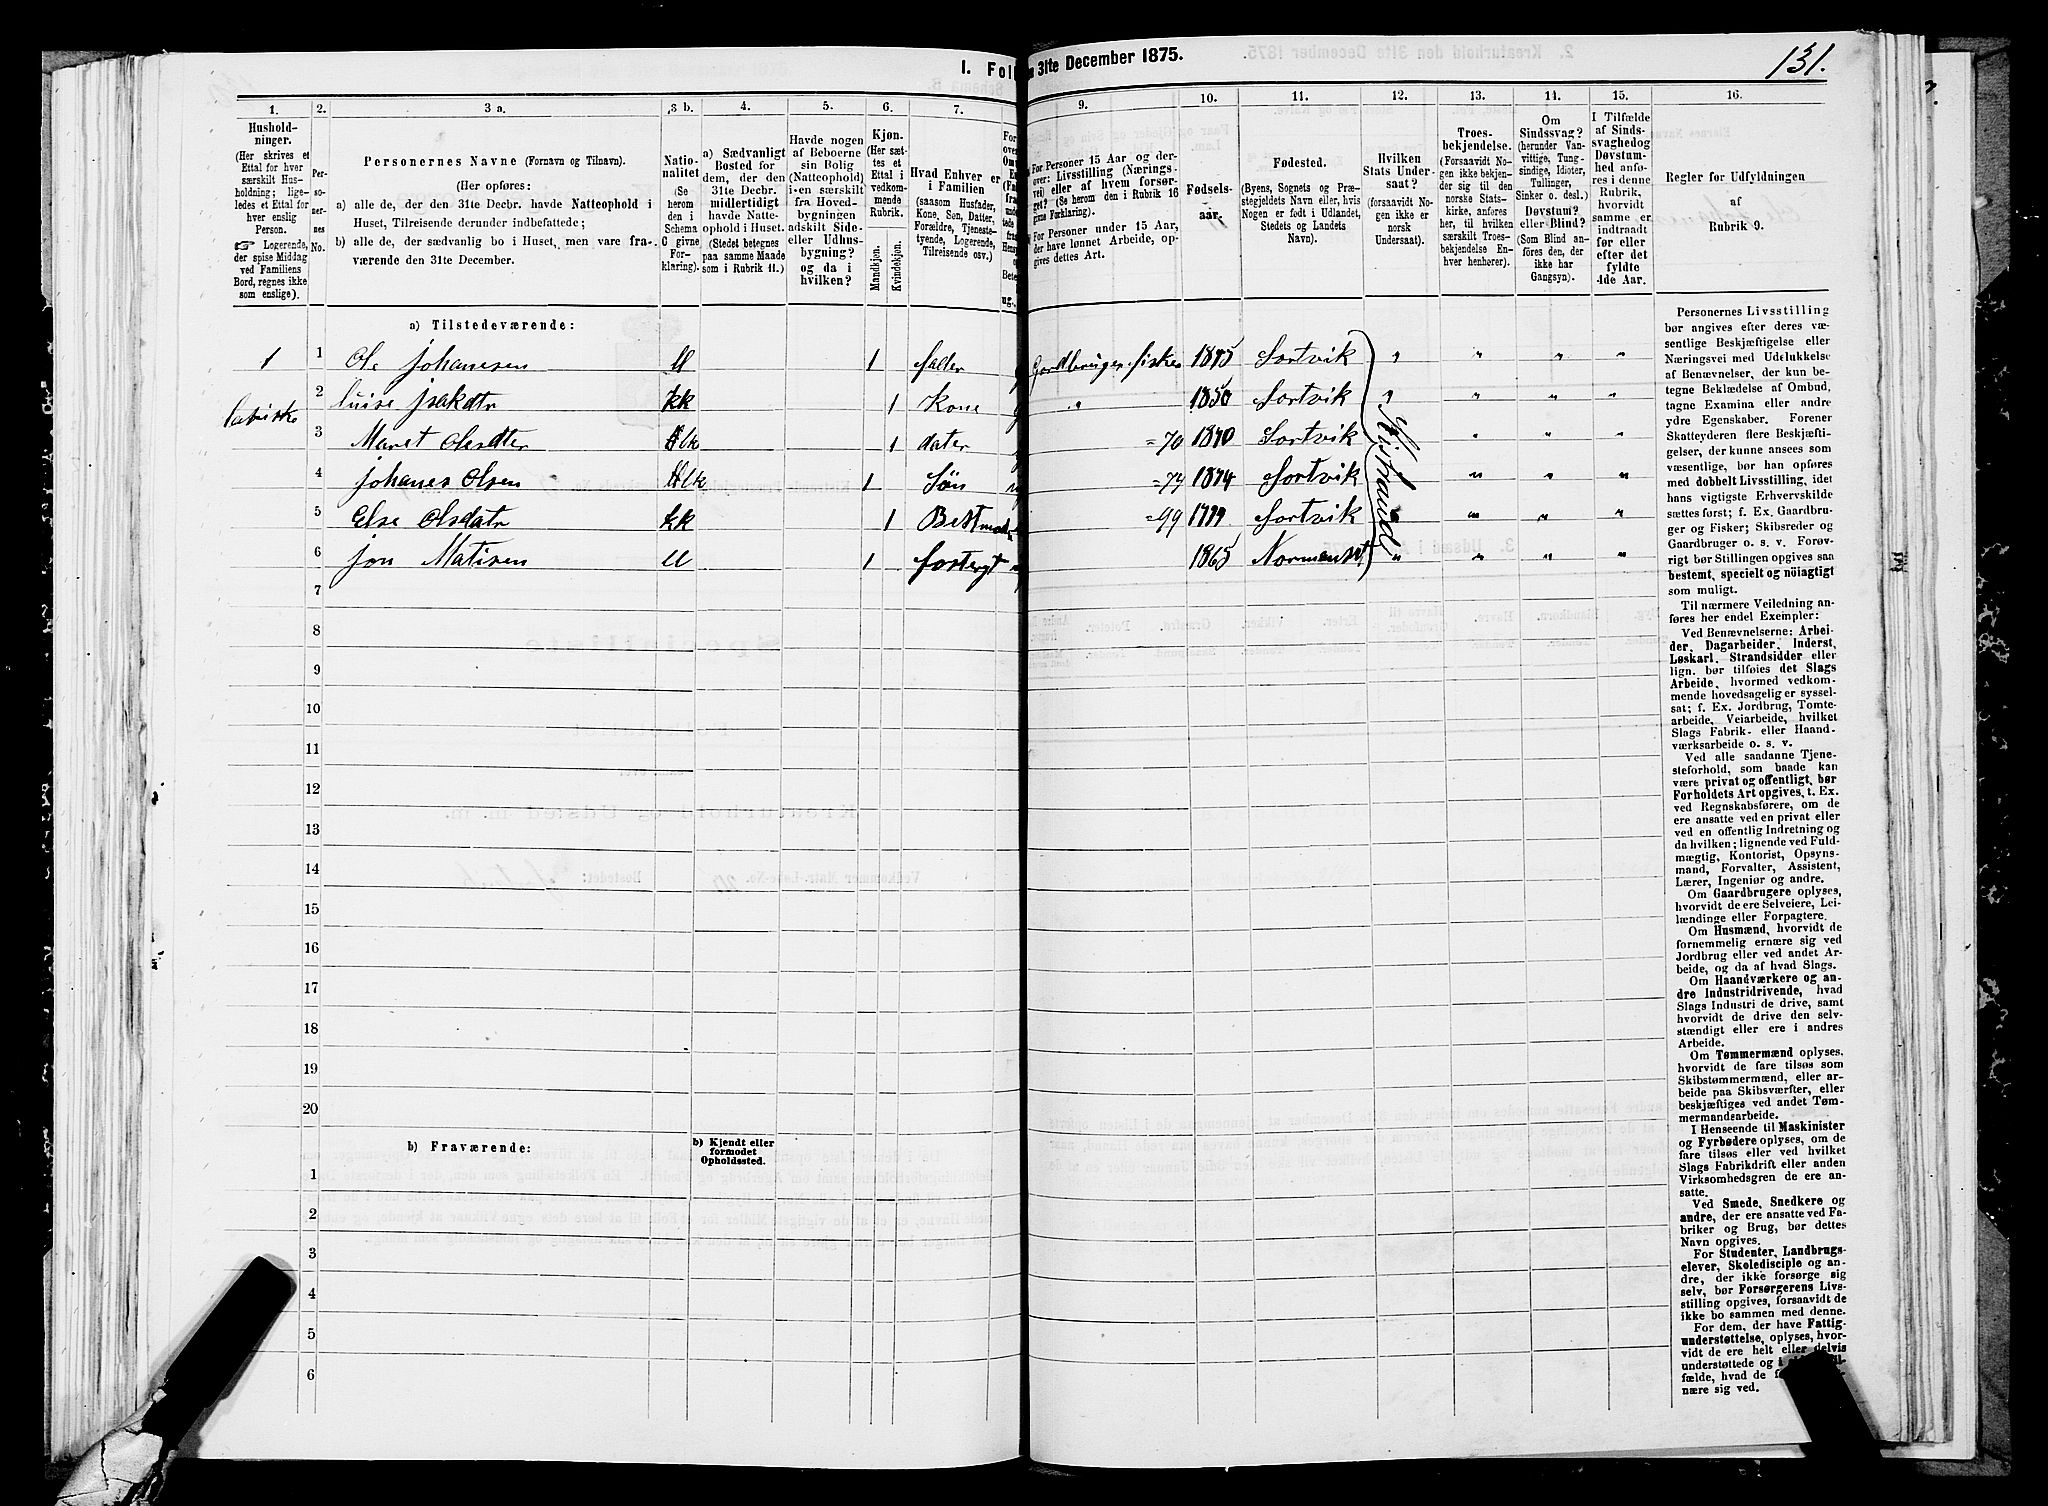 131.
I. Fol
n 31te December 1875.
1.
2.
3 a.
3 b.
4.
5.
6.
7.
9.
10.
11.
12.
13.
14.
15.
16.
Hushold-
ninger.
(Her skrives et
Ettal for hver
særskilt Hus-
holdning; lige-
ledes et Ettal for
hver enslig
Person.
☞ Logerende,
der spise Middag
ved Familiens
Bord, regnes ikke
som enslige).
Per-
so-
ner-
nes
No.
Personernes Navne (Fornavn og Tilnavn).
(Her opføres:
a) alle de, der den 31te Decbr. havde Natteophold i
Huset, Tilreisende derunder indbefattede;
b) alle de, der sædvanlig bo i Huset, men vare fra-
værende den 31te December.
Natio-
nalitet
(Se
herom
den i
Schema
C givne
For-
klaring).
a) Sædvanligt
Bosted for
dem, der den
31te Decbr.
midlertidigt
havde Natte-
ophold i Huset.
(Stedet betegnes
paa samme Maade
som i Rubrik 11.)
Havde nogen
af Beboerne
sin Bolig
(Natteophold)
i en særskilt
fra Hoved-
bygningen
adskilt Side-
eller Udhus-
bygning?
og da i
hvilken?
Kjøn.
(Her sæt-
tes et
Ettal i
vedkom-
mende
Rubrik.
Mandkjøn.
Kvindekjøn.
Hvad Enhver er
i Familien
(saasom Husfader,
Kone, Søn, Datter,
Forældre, Tjeneste-
tyende, Logerende,
Tilreisende osv.)
For Personer 15 Aar og der-
over: Livsstilling (Nærings-
vei) eller af hvem forsør-
get? (Se herom den i Rubrik 16
givne Forklaring.)
For Personer under 15 Aar,
der have lønnet Arbeide, op-
gives dettes Art.
Fødsels-
aar.
Fødested.
(Byens, Sognets og Præ-
stegjeldets Navn eller, hvis
Nogen er født i Udlandet,
Stedets og Landets
Navn).
Hvilken
Stats Under-
saat?
(forsaavidt No-
gen ikke er
norsk
Undersaat).
Troes-
bekjendelse.
(Forsaavidt No-
gen ikke bekjen-
der sig til den
norske Stats-
kirke, anføres
her, til hvilken
særskilt Troes-
bekjendelse En-
hver henhører).
Om
Sindssvag?
(herunder Van-
vittige, Tung-
sindige, Idioter,
Tullinger,
Sinker o. desl.)
Døvstum?
eller Blind?
(Som Blind an-
föres den, der
ikke har
Gangsyn).
I Tilfælde
af Sinds-
svaghed og
Døvstum-
hed anfø-
res i denne
Rubrik,
hvorvidt
samme er
indtraadt
før eller
efter det
fyldte
4de Aar.
Regler for Udfyldningen
af
Rubrik 9.
a) Tilstedeværende:
1 1 Ole Johanesen ll 1 fader Gardbruger fisker 1845 Sortvik " " " "
2 luise Isakdtr kk 1 Kone " 1850 Sortvik " " " "
3 Maret Olesdter lk 1 dater =70 1870 Sortvik " " "
4 Johanes Olsen lk 1 Søn =74 1874 Sortvik " " "
5 Else Olsdatr kk 1 Bestmod =99 1799 Sortvik " " "
6 Jon Matisen ll 1 fostergt 1865 Normanset " " " "
Kistrand
7
8
9
10
11
12
13
14
15
16
17
18
19
20
b) Fraværende:
b) Kjendt eller
formodet
Opholdssted.
1
2
3
4
5
6
Personernes Livsstilling
bør angives efter deres væ-
sentlige Beskjæftigelse eller
Næringsvei med Udelukkelse
af Benævnelser, der kun be-
tegne Beklædelse af Ombud,
tagne Examina eller andre
ydre Egenskaber. Forener
Skatteyderen flere Beskjæfti-
gelser, der kunne ansees som
væsentlige, bør han opføres
med dobbelt Livsstilling, idet
hans vigtigste Erhvervskilde
sættes først; f. Ex. Gaardbru-
ger og Fisker; Skibsreder og
Gaardbruger o. s. v. Forøv-
rigt bør Stillingen opgives saa
bestemt, specielt og nöiagtigt
som muligt.
Til nærmere Veiledning an-
føres her endel Exempler:
Ved Benævnelserne: Arbei-
der, Dagarbeider, Inderst,
Løskarl, Strandsidder eller
lign. bør tilføies det Slags
Arbeide, hvormed vedkom-
mende hovedsagelig er syssel-
sat; f. Ex. Jordbrug, Tomte-
arbeide, Veiarbeide, hvilket
Slags Fabrik- eller Haand-
værksarbeide o. s. v.
Ved alle saadanne Tjene-
steforhold, som baade kan
være privat og offentligt, bør
Forholdets Art opgives, t. Ex.
ved Regnskabsførere, om de
ere ansatte ved en privat eller
ved en offentlig Indretning og
da hvilken; lignende ved Fuld-
mægtig, Kontorist, Opsyns-
mand, Forvalter, Assistent,
Lærer, Ingeniør og andre.
Om Gaardbrugere oplyses,
hvorvidt de ere Selveiere, Lei-
lændinge eller Forpagtere.
Om Husmænd, hvorvidt de
fornemmelig ernære sig ved
Jordbrug eller ved andet Ar-
beide, og da af hvad Slags.
Om Haandværkere og an-
dre Industridrivende, hvad
Slags Industri de drive, samt
hvorvidt de drive den selv-
stændigt eller ere i andres
Arbeide.
Om Tømmermænd oplyses,
hvorvidt de fare tilsøs som
Skibstømmermænd, eller ar-
beide paa Skibsværfter, eller
beskjæftiges ved andet Tøm-
mermandsarbeide.
I Henseende til Maskinister
og Fyrbødere oplyses, om de
fare tilsøs eller ved hvilket
Slags Fabrikdrift eller anden
Virksomhedsgren de ere an-
satte.
Ved Smede, Snedkere og
andre, der ere ansatte ved Fa-
briker og Brug, bør dettes
Navn opgives.
For Studenter, Landbrugs-
elever, Skoledisciple og an-
dre, der ikke forsørge sig
selv, bør Forsørgerens Livs-
stilling opgives, forsaavidt de
ikke bo sammen med denne.
For dem, der have Fattig-
understøttelse, oplyses, hvor-
vidt de ere helt eller delvis
understøttede og i
fælde, hvad de
nære sig ved.